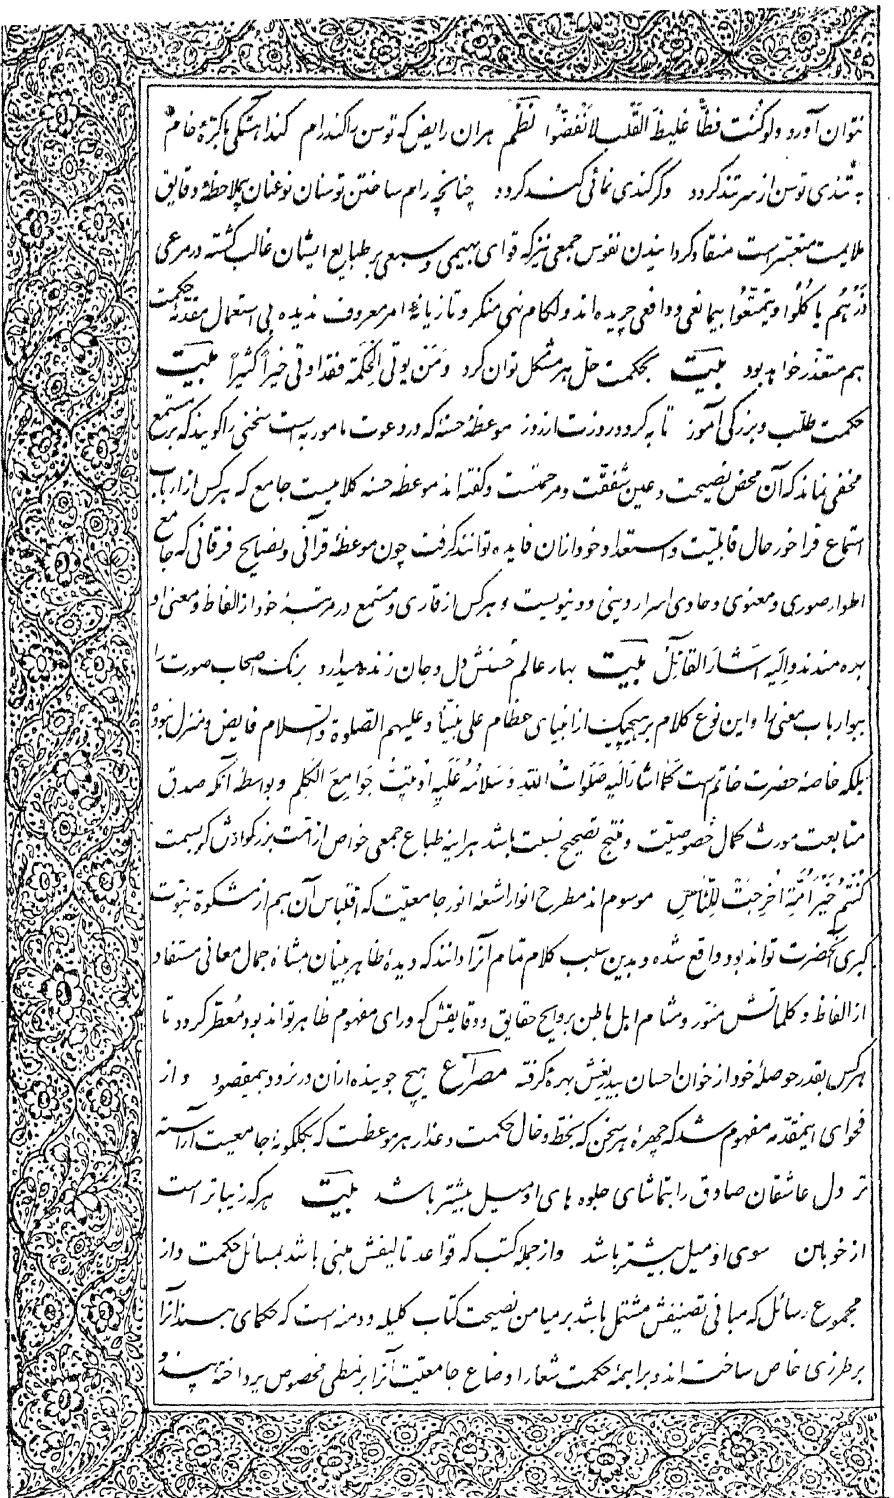 نتوان آورد ولو کنت فظا غلیظ القلب لانفضوا نظم هران رایض که توسن را کند رام کند آهستگی با کرهٔ خام
به تندی توسن از سر تند گردد وگر کندی نمائی کند گردد چنانچه رام ساختن توسنان نوعنان بملاحظهٔ دقایق
ملایمت متعسرست منقاد گردانیدن نفوس جمعی نیز که قوای بهیمی و سبعی بر طبایع ایشان غالب گشته در مرعی
ذرهم یاکلوا و یتمتعوا بیمانعی و دافعی چریده‌اند و لگام نهی منکر و تازیانهٔ امر معروف ندیده بی استعمال مقدمهٔ حکمت
هم متعذر خواهد بود بیت بحکمت حل هر مشکل توان کرد و من یوتی الحکمة فقد اوتی خیرا کثیرا بیت
حکمت طلب و بزرگی آموز تا به گردد روزت از روز موعظهٔ حسنه که در دعوت مامور به است سخنی را گویند که بر مستمع
مخفی نماند که آن محض نصیحت و عین شفقت و مرحمتست و گفته‌اند موعظه حسنه کلامیست جامع که هر کس از ارباب
استماع فراخور حال قابلیت و استعداد خود ازان فایده توانند گرفت چون موعظهٔ قرآنی و نصایح فرقانی که جامع
اطوار صوری و معنوی و حاوی اسرار دینی و دنیویست و هر کس از قاری و مستمع در مرتبهٔ خود از الفاظ و معنی او
بهره‌مندند والیه اشار القائل بیت بهار عالم حسنش دل و جان زنده میدارد برنگ اصحاب صورت را
ببو ارباب معنی را و این نوع کلام بر هیچیک از انبیای عظام علی نبینا و علیهم الصلوة والسلام فایض و منزل نبوده
بلکه خاصهٔ حضرت خاتم است کما اشار الیه صلوات الله و سلامه علیه اوتیت جوامع الکلم و بواسطه آنکه صدق
متابعت مورث کمال خصوصیت و منتج تصحیح نسبت باشد هر اینه طباع جمعی خواص از امت بزرگوارش که بسمت
کنتم خیر امة اخرجت للناس موسوم‌اند مطرح انوار اشعهٔ انور جامعیت که اقتباس آن هم از مشکوة نبوت
کبری آنحضرت تواند بود واقع شده و بدین سبب کلام تمام آنرا دانند که دیدهٔ ظاهر بینان بمشاهدهٔ جمال معانی مستفاد
از الفاظ و کلماتش منور و مشام اهل باطن بروایح حقایق و دقایقش که ورای مفهوم ظاهر تواند بود معطر گردد تا
هر کس بقدر حوصلهٔ خود از خوان احسان بیدریغش بهره گرفته مصراع هیچ جوینده ازان در نرود بمقصود و از
فحوای اینمقدمه مفهوم شد که چهرهٔ هر سخن که بخط و خال حکمت و عذار هر موعظت که بگلگونهٔ جامعیت آراسته
تر دل عاشقان صادق را بتماشای جلوه های او میل بیشتر باشد بیت هر که زیباتر است
از خوبان سوی او میل بیشتر باشد و از جملهٔ کتب که قواعد تالیفش مبنی باشد بمسائل حکمت و از
مجموع رسائل که مبانی تصنیفش مشتمل باشد بر میامن نصیحت کتاب کلیله و دمنه است که حکمای هند آنرا
بر طرزی خاص ساخته‌اند و براهمهٔ حکمت شعار اوضاع جامعیت آنرا بر نمطی مخصوص پرداخته پند و